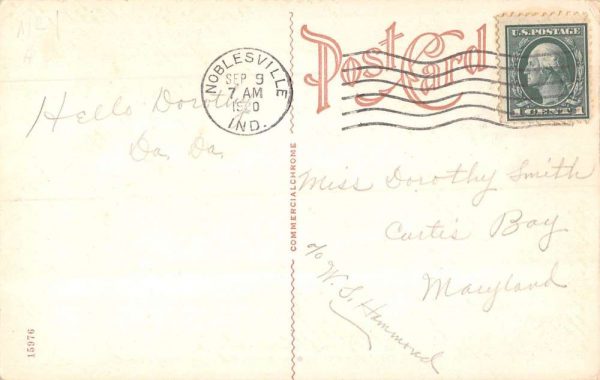 Hello Dorothy
Da. Da.
NOBLESVILLE
SEP 9
7 AM
1920
IND.
Post Card
U.S. POSTAGE
1 CENT 1
COMMERCIALCHROME
Miss Dorothy Smith
Curtis Bay
Maryland
c/o W. S. Hammond
15976